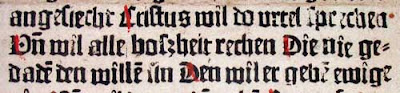 angesiecht Cristus wil do vrteil sprechen
Vn̄ wil alle boszheit rechen Die nie ge-
dadē den willē sin Den wil er gebē ewige